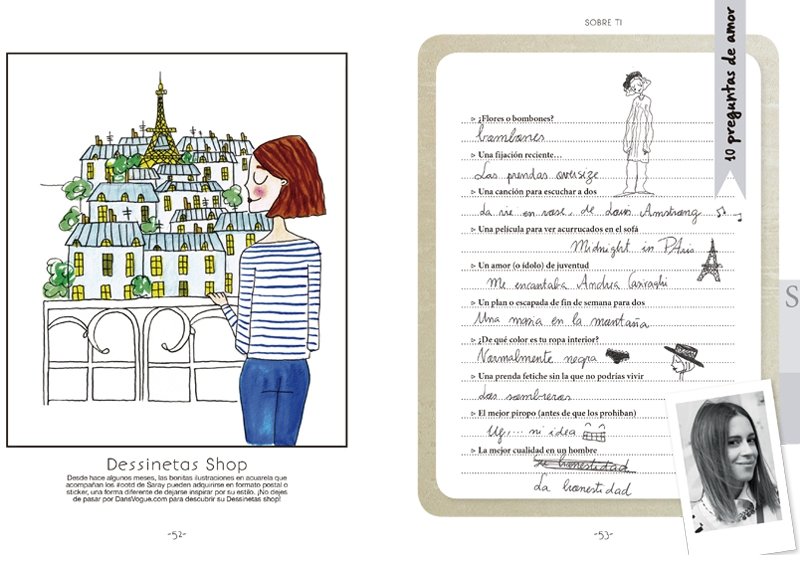 Dessinetas Shop
Desde hace algunos meses, las bonitas ilustraciones en acuarela que
acompañan los #ootd de Saray pueden adquirirse en formato postal o
sticker, una forma diferente de dejarse inspirar por su estilo. ¡No dejes
de pasar por DansVogue.com para descubrir su Dessinetas shop!
-52-
SOBRE TI
10 preguntas de amor
▹ ¿Flores o bombones?
bombones
▹ Una fijación reciente...
Las prendas oversize
▹ Una canción para escuchar a dos
La vie en rose, de Louis Amstrong
▹ Una película para ver acurrucados en el sofá
Midnight in PAris
▹ Un amor (o ídolo) de juventud
Me encantaba Andrea Casiraghi
▹ Un plan o escapada de fin de semana para dos
Una masia en la montaña
▹ ¿De qué color es tu ropa interior?
Normalmente negra
▹ Una prenda fetiche sin la que no podrías vivir
Los sombreros
▹ El mejor piropo (antes de que los prohiban)
Uf,... ni idea
▹ La mejor cualidad en un hombre
Su honestidad
La honestidad
-53-
S